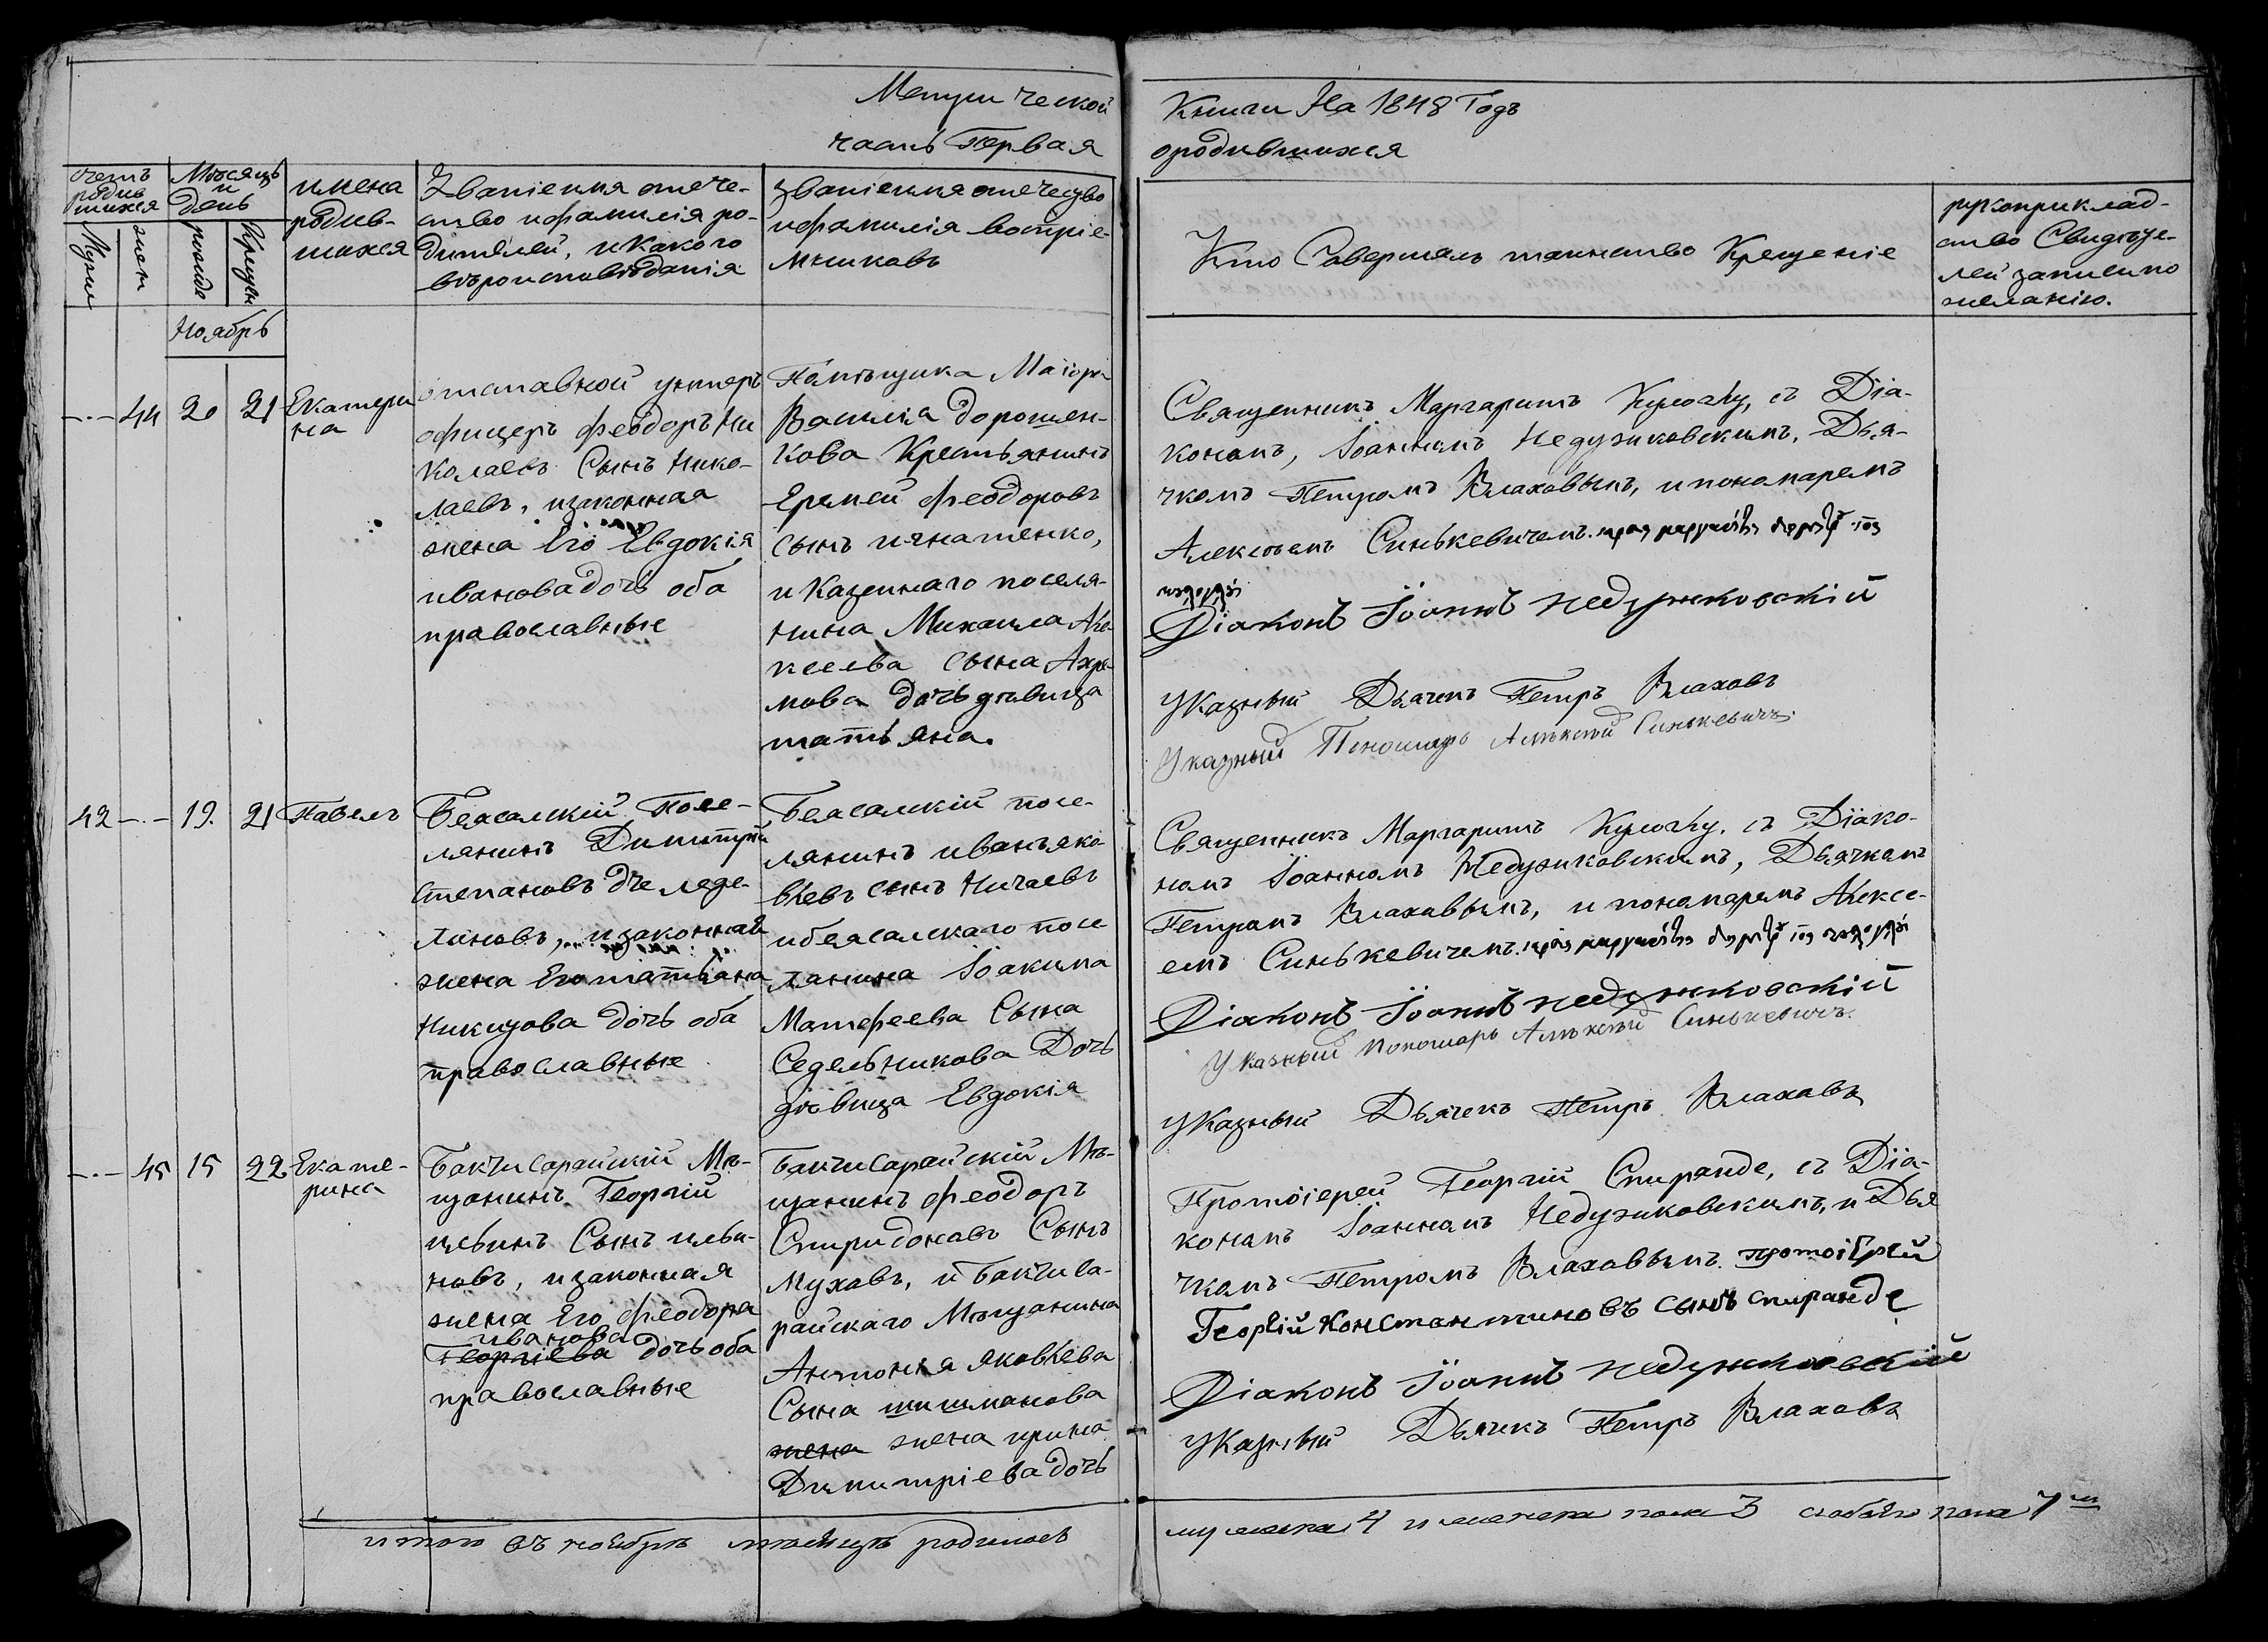 Метрической
часть Первая
Книги На 1848 Годъ
ородившихся
счетъ родив шихся
Мужи
жен
Мѣсяцъ и День
рожде
Крещен
имена
родив-
шихся
Званіеимя отече-
ство ифамилія ро-
дителей, икакого
вѣроисповѣданія
званіеимя отечество
ифамилія воспріе-
мниковъ
Кто Совершалъ таинство Крещеніе
рукоприклад-
ство Свидѣте-
лей записи по
желанію.
Ноябрь
-.- 44 20 21
Екатери
на
отставной унтеръ
офицеръ Феодоръ Ни
колаевъ Сынъ Нико-
лаевъ, изаконная
жена Его Евдокія
ивановадочь оба
православные
Помѣщика Маіора
Василіа дорошен-
кова Крестьянинъ
Еремей Феодоровъ
сынъ игнатенко,
иКазеннаго поселя-
нина Михаила Але-
ксеева сына Ахра-
мова дочьдѣвица
татьяна.
Священникъ Маргаритъ Кулочку, съ Діа-
кономъ, Іоанномъ Недузжковскимъ, Дья-
чкомъ Петромъ Влаховымъ, ипономаремъ
Алексѣемъ Синькевичемъ.
Діаконъ Іоаннъ Недужковскій
Указный Дьячекъ Петръ Влаховъ
Указный Пономарь Алѣксѣй Синкевичъ.
42 -.- 19. 21
Павелъ
Беясалскій Посе-
лянинъ Димитрій
Степановъ
изаконная
жена Егототатьяна
Никитова дочь оба
православные
Беясалскій посе-
лянинъ иванъяко-
влевъ сынъ Ничаевъ
ибеясалскаго посе
лянина Іоакима
Матфеева Сына
Седельникова Дочь
дѣвица Евдокія
Священникъ Маргаритъ Кулочку, съ Діако-
номъ Іоанномъ Недужковскимъ, Дьячкомъ
Петромъ Влаховымъ, и пономаремъ Алексе-
емъ Синькевичемъ.
Діаконъ Іоаннъ недужковскій
Указный пономарь Алѣксѣй Синкевичъ.
Указный Дьячекъ Петръ Влаховъ
-.- 45 15 22
Екате-
рина
Бакчисарайскій Мѣ-
щанинъ Георгій
ильинъ Сынъ ильи-
новъ, изаконная
жена Его Феодора
иванова
Георгіева дочьоба
православные
Бакчисарайскій Мѣ-
щанинъ Феодоръ
Спиридоновъ Сынъ
Муховъ, и Бакчиса-
райскаго Мѣщанина
Антонія яковлева
Сына шишманова
жена жена ирина
Димитріева дочь
Протоіерей Георгій Спиранде, съ Діа-
кономъ Іоанномъ Недужковскимъ, и Дья
чкомъ Петромъ Влаховымъ. протоіерей
Георгій Константиновъ сынъ спиранде
Діаконъ Іоаннъ недужковскій
Указный Дьячекъ Петръ Влаховъ
итого въ ноябрѣ мѣсяцѣ родилось
мужеска 4 и женска пола 3 обоего пола 7